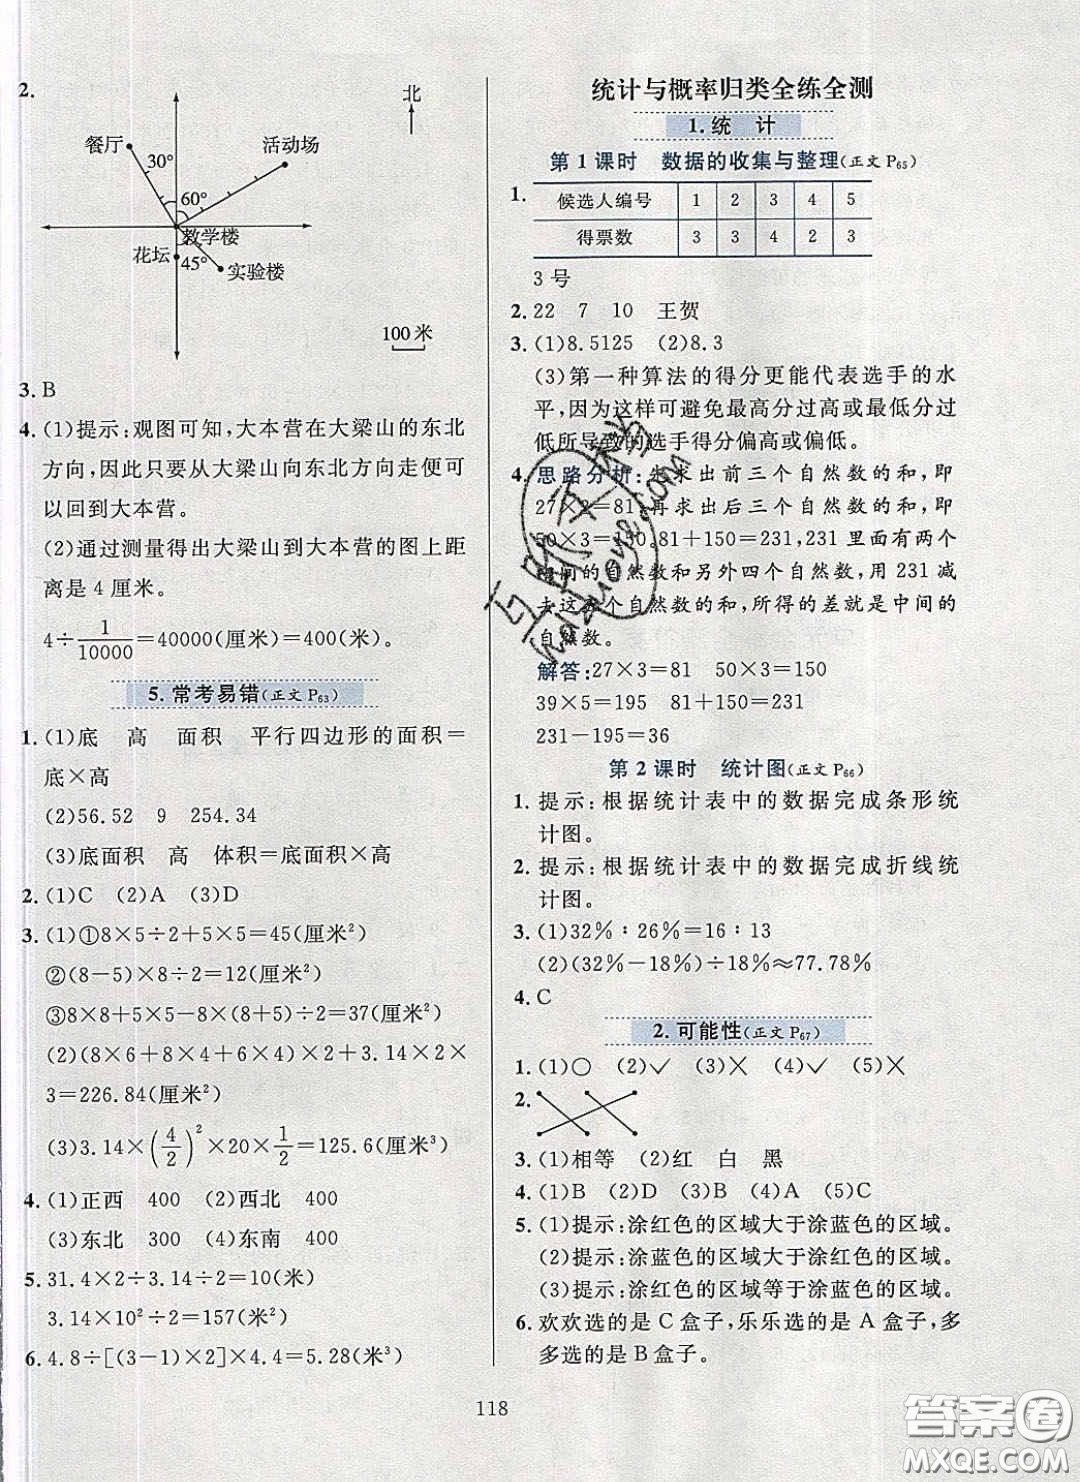 2.
北
餐厅
活动场
30°
60°
教学楼
花坛
45°
实验楼
100米
3. B
4. (1)提示:观图可知,大本营在大梁山的东北
方向,因此只要从大梁山向东北方向走便可
以回到大本营。
(2)通过测量得出大梁山到大本营的图上距
离是4厘米。
4÷1/10000=40000(厘米)=400(米)。
5.常考易错(正文P63)
1. (1)底 高 面积 平行四边形的面积=
底×高
(2)56.52 9 254.34
(3)底面积 高 体积=底面积×高
2. (1)C (2)A (3)D
3. (1)①8×5÷2+5×5=45(厘米²)
②(8-5)×8÷2=12(厘米²)
③8×8+5×5-8×(8+5)÷2=37(厘米²)
(2)(8×6+8×4+6×4)×2+3.14×2×
3=226.84(厘米²)
(3)3.14×(4/2)²×20×1/2=125.6(厘米³)
4. (1)正西 400 (2)西北 400
(3)东北 300 (4)东南 400
5. 31.4×2÷3.14÷2=10(米)
3.14×10²÷2=157(米²)
6. 4.8÷[(3-1)×2]×4.4=5.28(米³)
统计与概率归类全练全测
1.统 计
第1课时 数据的收集与整理(正文P65)
1.
候选人编号 1 2 3 4 5
得票数 3 3 4 2 3
3号
2. 22 7 10 王贺
3. (1)8.5125 (2)8.3
(3)第一种算法的得分更能代表选手的水
平,因为这样可避免最高分过高或最低分过
低所导致的选手得分偏高或偏低。
4. 思路分析:先求出前三个自然数的和,即
27×3=81,再求出后三个自然数的和,即
50×3=150。81+150=231,231里面有两个
中间的自然数和另外四个自然数,用231减
去这五个自然数的和,所得的差就是中间的
自然数。
解答:27×3=81 50×3=150
39×5=195 81+150=231
231-195=36
第2课时 统计图(正文P66)
1. 提示:根据统计表中的数据完成条形统
计图。
2. 提示:根据统计表中的数据完成折线统
计图。
3. (1)32%∶26%=16∶13
(2)(32%-18%)÷18%≈77.78%
4. C
2.可能性(正文P67)
1. (1)○ (2)✓ (3)× (4)✓ (5)×
2.
3. (1)相等 (2)红 白 黑
4. (1)B (2)D (3)B (4)A (5)C
5. (1)提示:涂红色的区域大于涂蓝色的区域。
(2)提示:涂蓝色的区域大于涂红色的区域。
(3)提示:涂红色的区域等于涂蓝色的区域。
6. 欢欢选的是C盒子,乐乐选的是A盒子,
多多选的是B盒子。
118
答案圈
MXQE.COM